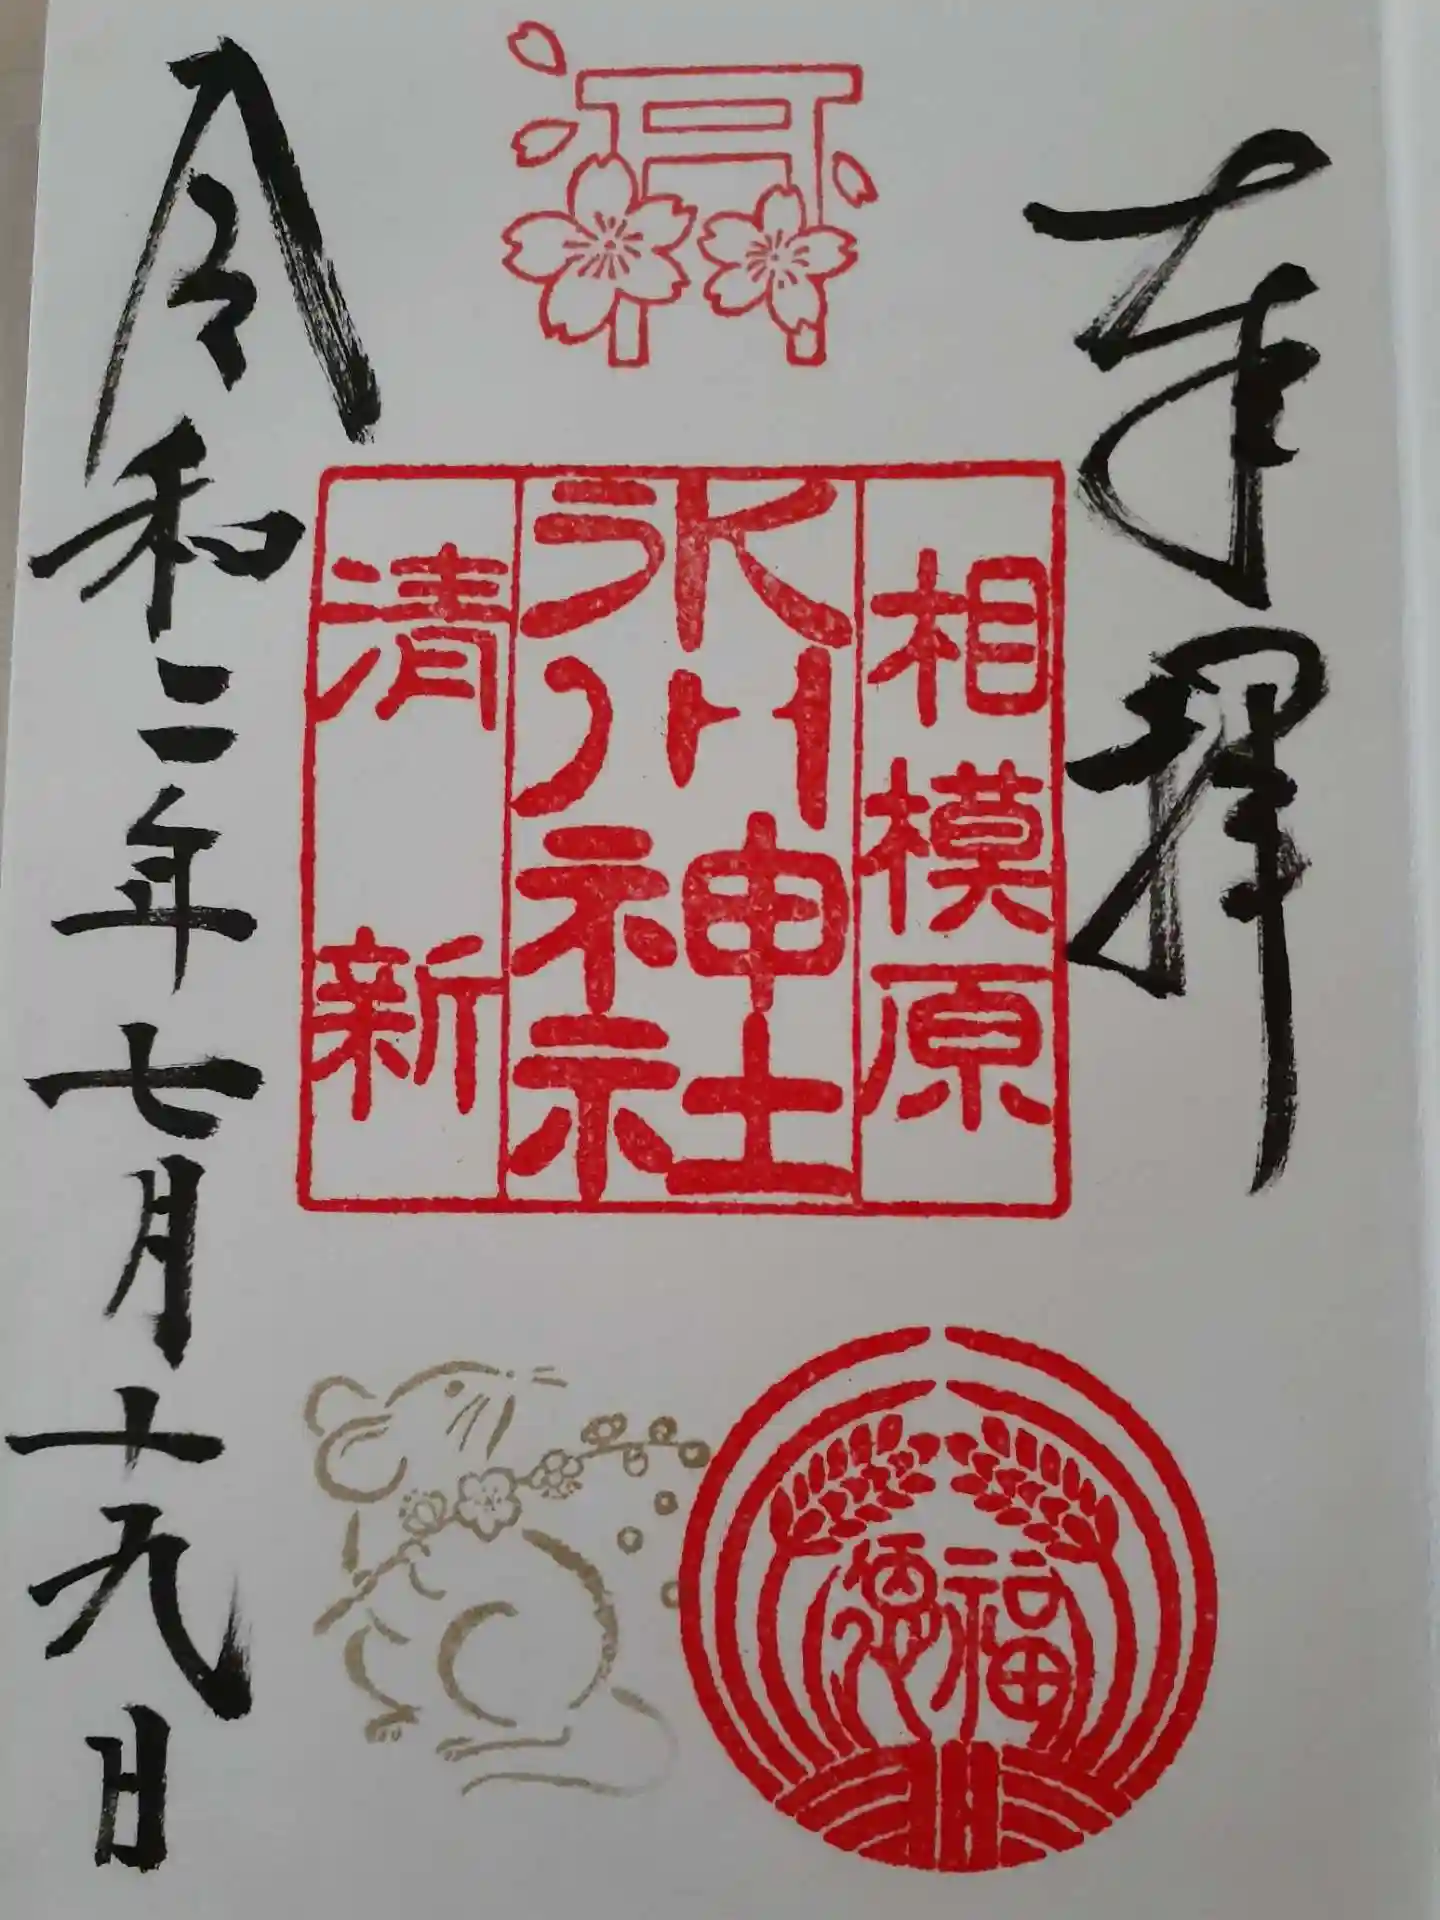 奉拝
相模原
氷川神社
清新
福徳
令和二年七月十九日